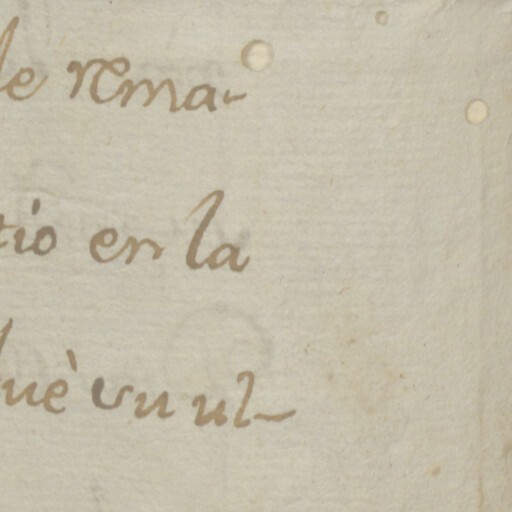 le rema-
tio en la
uè vn ul-